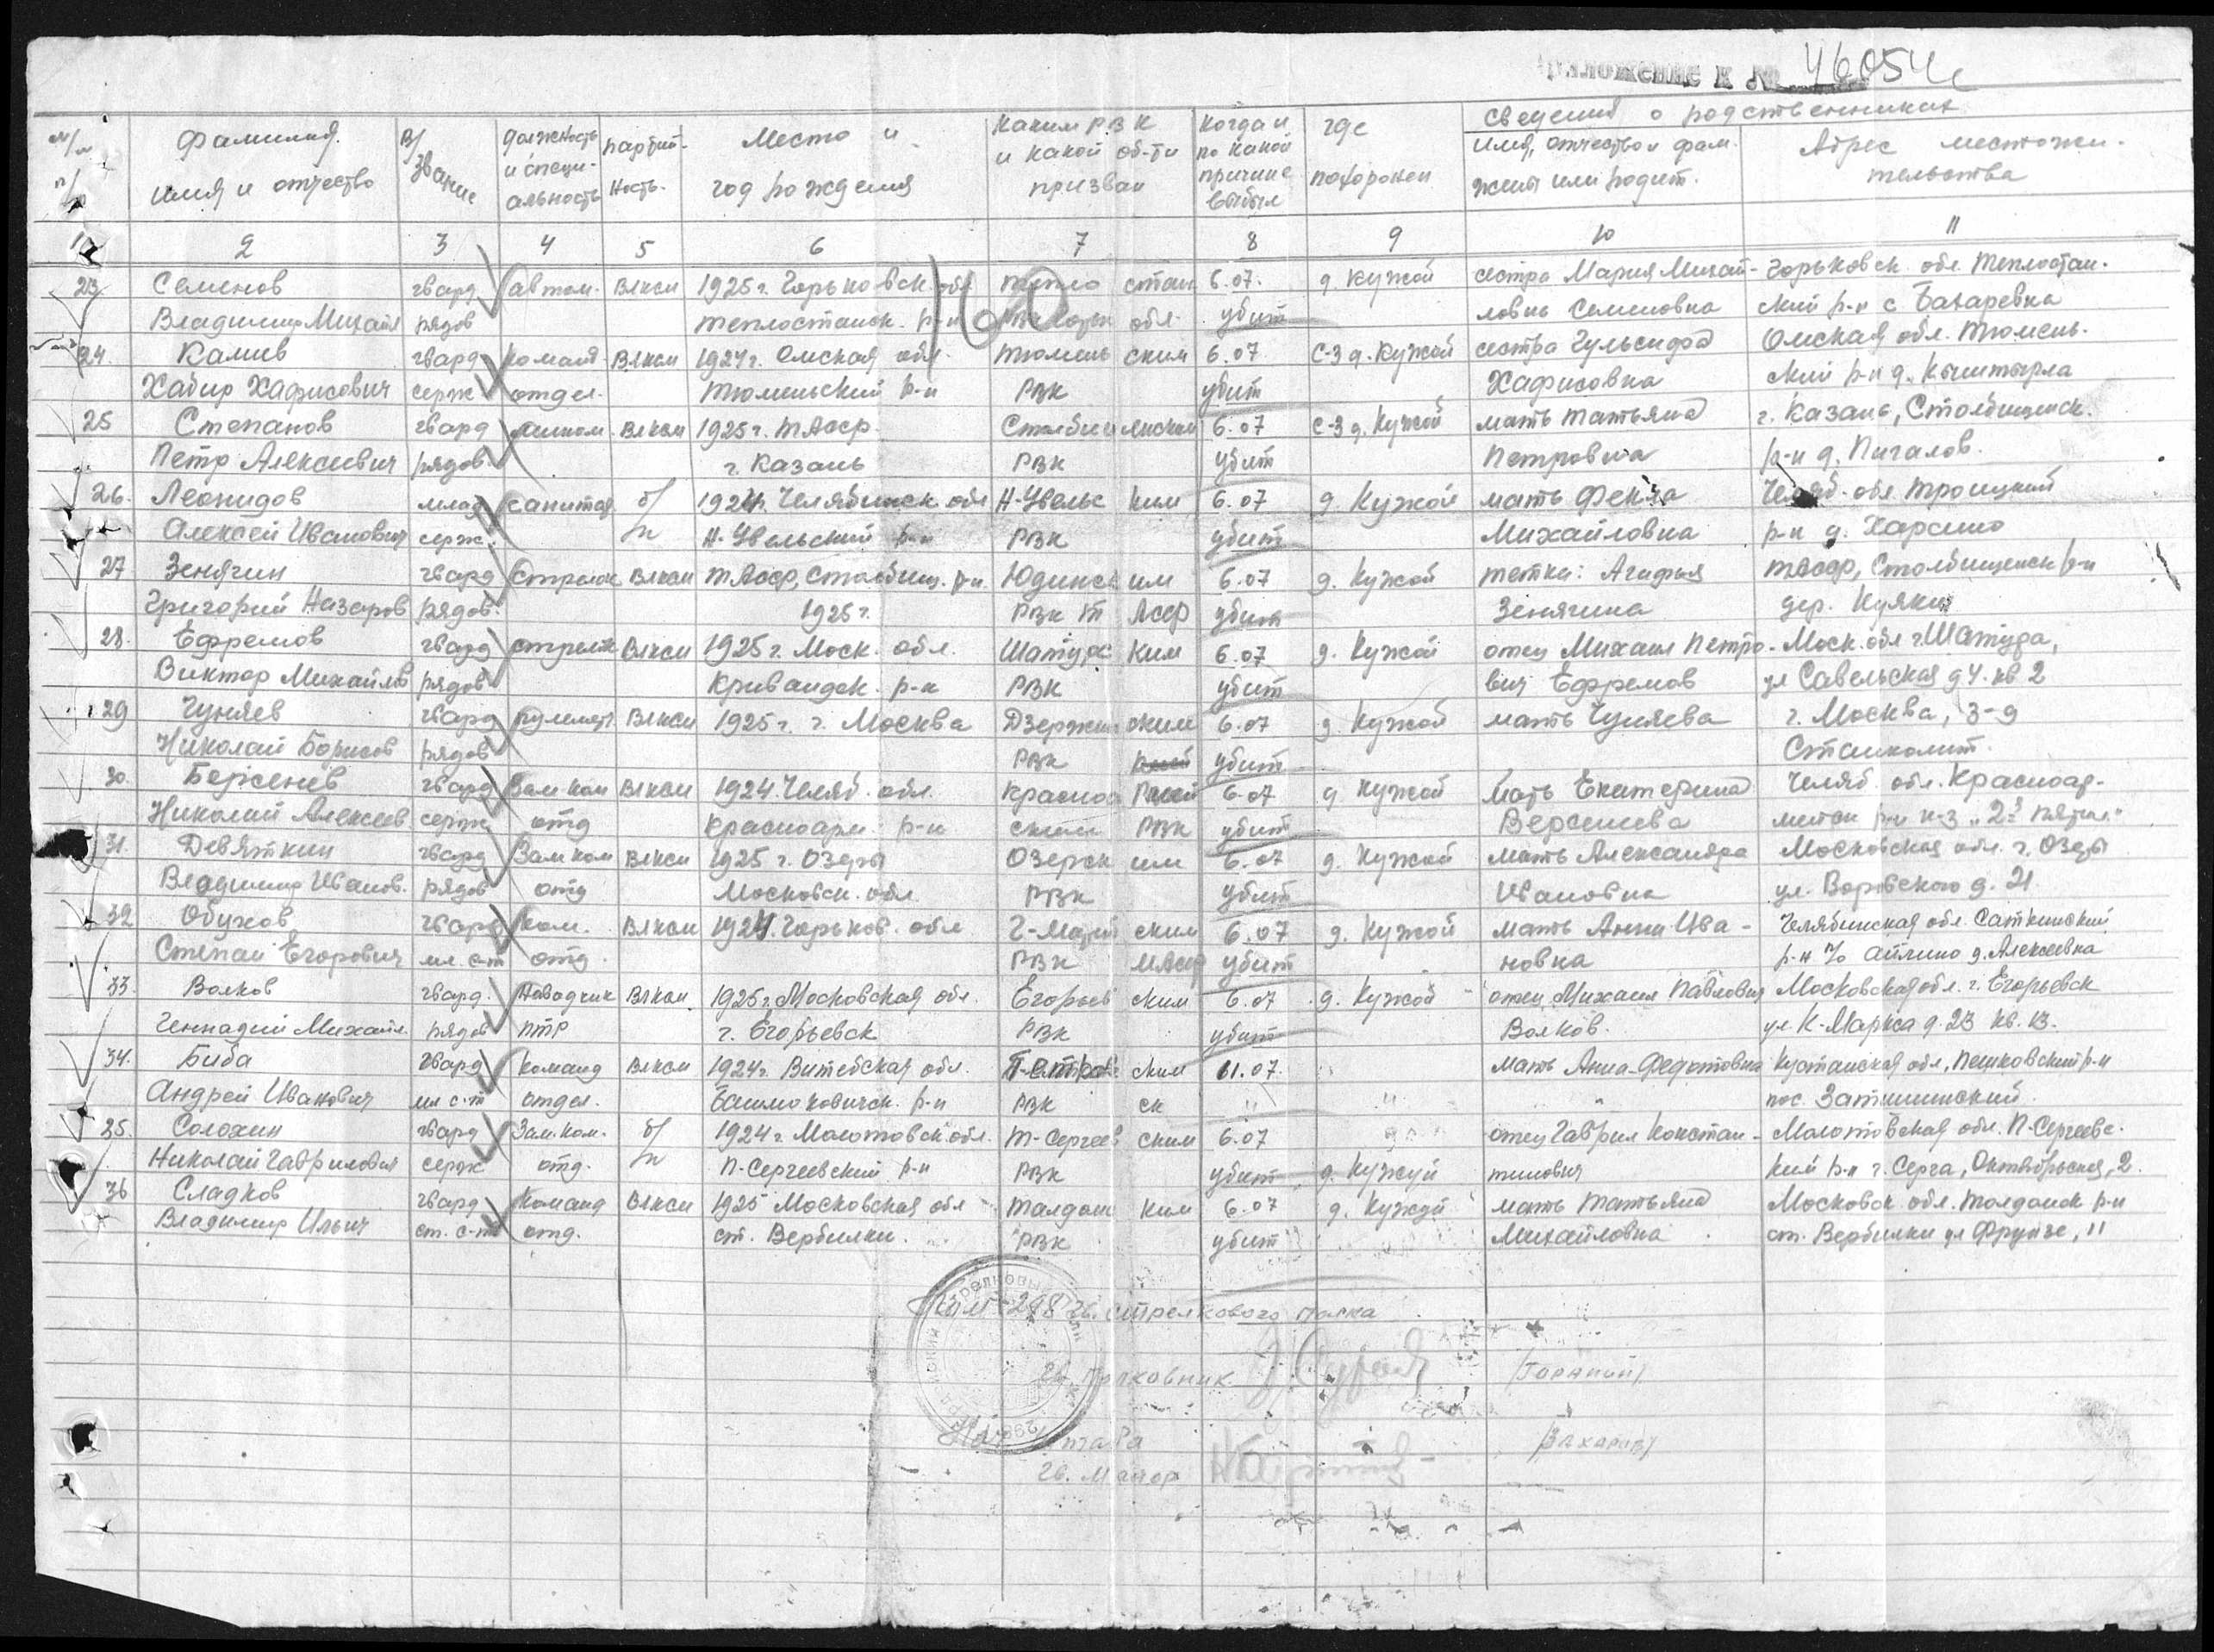 Приложение к № 46054с
Сведения о родственниках
№/№ п/п Фамилия, имя и отчество В/звание Должность и специальность Партийность Место и год рождения Каким РВК и какой об-ти призван Когда и по какой причине выбыл Где похоронен Имя, отчество и фам. жены или родит. Адрес местожительства
1 2 3 4 5 6 7 8 9 10 11
23 Семенов гвард автом. ВЛКСМ 1925 г. Горьковск. обл. Тепло стан 6.07. д. Кужой сестра Мария Михай- Горьковск. обл. Теплостан.
Владимир Михайл рядов Теплостанск. р-н обл. убит ловна Семеновна ский р-н с Базаревка
24. Калиев гвард команд. ВЛКСМ 1924 г. Омская обл. Тюмень ским 6.07 С-З д. Кужой сестра Гульсифа Омская обл. Тюмень-
Хабир Хафисович серж отдел. Тюменский р-н РВК убит Хафисовна ский р-н д. Кыштырла
25 Степанов гвард ВЛКСМ 1925 г. ТАССР. Столбищ енским 6.07 С-З д. Кужой мать Татьяна г. Казань, Столбищенск.
Петр Алексеевич рядов г. Казань РВК убит Петровна р-н д. Пигалов.
26. Леонидов млад санитар б/ 1924 г. Челябинск. обл Н-Увельс ким 6.07 д. Кужой мать Фекла Челяб. обл Троицкий
Алексей Иванович серж. п Н-Увельский р-н РВК убит Михайловна р-н д. Харсино
27 Зенягин гвард стрелок ВЛКСМ ТАССР, Столбищ. р-н. Юдинск им 6.07 д. Кужой тетка: Агафья ТАССР, Столбищенск р-н
Григорий Назаров рядов. 1925 г. РВК Т АССР убит Зенягина дер. Куяки
28. Ефремов гвард стрелок ВЛКСМ 1925 г. Моск. обл. Шатурс ким 6.07 д. Кужой отец Михаил Петро- Моск. обл г. Шатура,
Виктор Михайлов рядов Кривандск. р-н РВК убит вич Ефремов ул Савельская д 4. кв 2
29 Чуняев гвард пулемет. ВЛКСМ 1925 г. г. Москва Дзержин ским 6.07 д. Кужой мать Чуняева г. Москва, з-д
Николай Борисов рядов РВК убит Станколит.
30. Берсенев гвард Зам ком ВЛКСМ 1924. Челяб. обл. Красноа 6.07 д Кужой Мать Екатерина Челяб. обл. Красноар-
Николай Алексеев серж отд Красноарм. р-н ским РВК убит Берсенева мейск р-н к-з "2я пятил."
31. Девяткин гвард Зам ком ВЛКСМ 1925 г. Озеры Озерск им 6.07 д. Кужой мать Александра Московская обл. г. Озеры
Владимир Иванов. рядов отд Московск. обл. РВК убит Ивановна ул. Воровского д. 21
32 Обухов гвард Ком. ВЛКСМ 1924. Горьков. обл Г-Марий ским 6.07 д. Кужой мать Анна Ива- Челябинская обл Саткинский
Степан Егорович мл. с-т отд. РВК МАССР убит новна р-н п/о Айлино д. Алексеевка
33. Волков гвард. Наводчик ВЛКСМ 1925 г. Московская обл. Егорьев ским 6.07 д. Кужой отец Михаил Павлович Московская обл. г. Егорьевск
Геннадий Михайл. рядов ПТР г. Егорьевск РВК убит Волков. ул. К-Маркса д. 23 кв. 13.
34. Биба гвард команд ВЛКСМ 1924 г. Витебская обл. П-етров ским 11.07. мать Анна Федотовна Кустанская обл, Пешковский р-н
Андрей Иванович мл с-т отдел. РВК " " пос. Затишинский.
35. Солохин гвард Зам. ком. б/ 1924 г. Молотовск. обл. П-Сергеев ским 6.07 отец Гаврил Констан- Молотовская обл. П-Сергеевс-
Николай Гаврилович серж отд. п П-Сергеевский р-н РВК убит д. Кужуй тинович кий р-н г. Серга, Октябрьская, 2.
36 Сладков гвард Команд ВЛКСМ 1925 Московская обл Талдом ким 6.07 д. Кужуй мать Татьяна Московск обл. Талдомск р-н
Владимир Ильич ст. с-т отд. ст. Вербилки. РВК убит Михайловна ст. Вербилки ул Фрунзе, 11
Ком-298 гв. стрелкового полка
гв. Полковник /Горный/
Нач штаба /Захаров/
гв. Майор